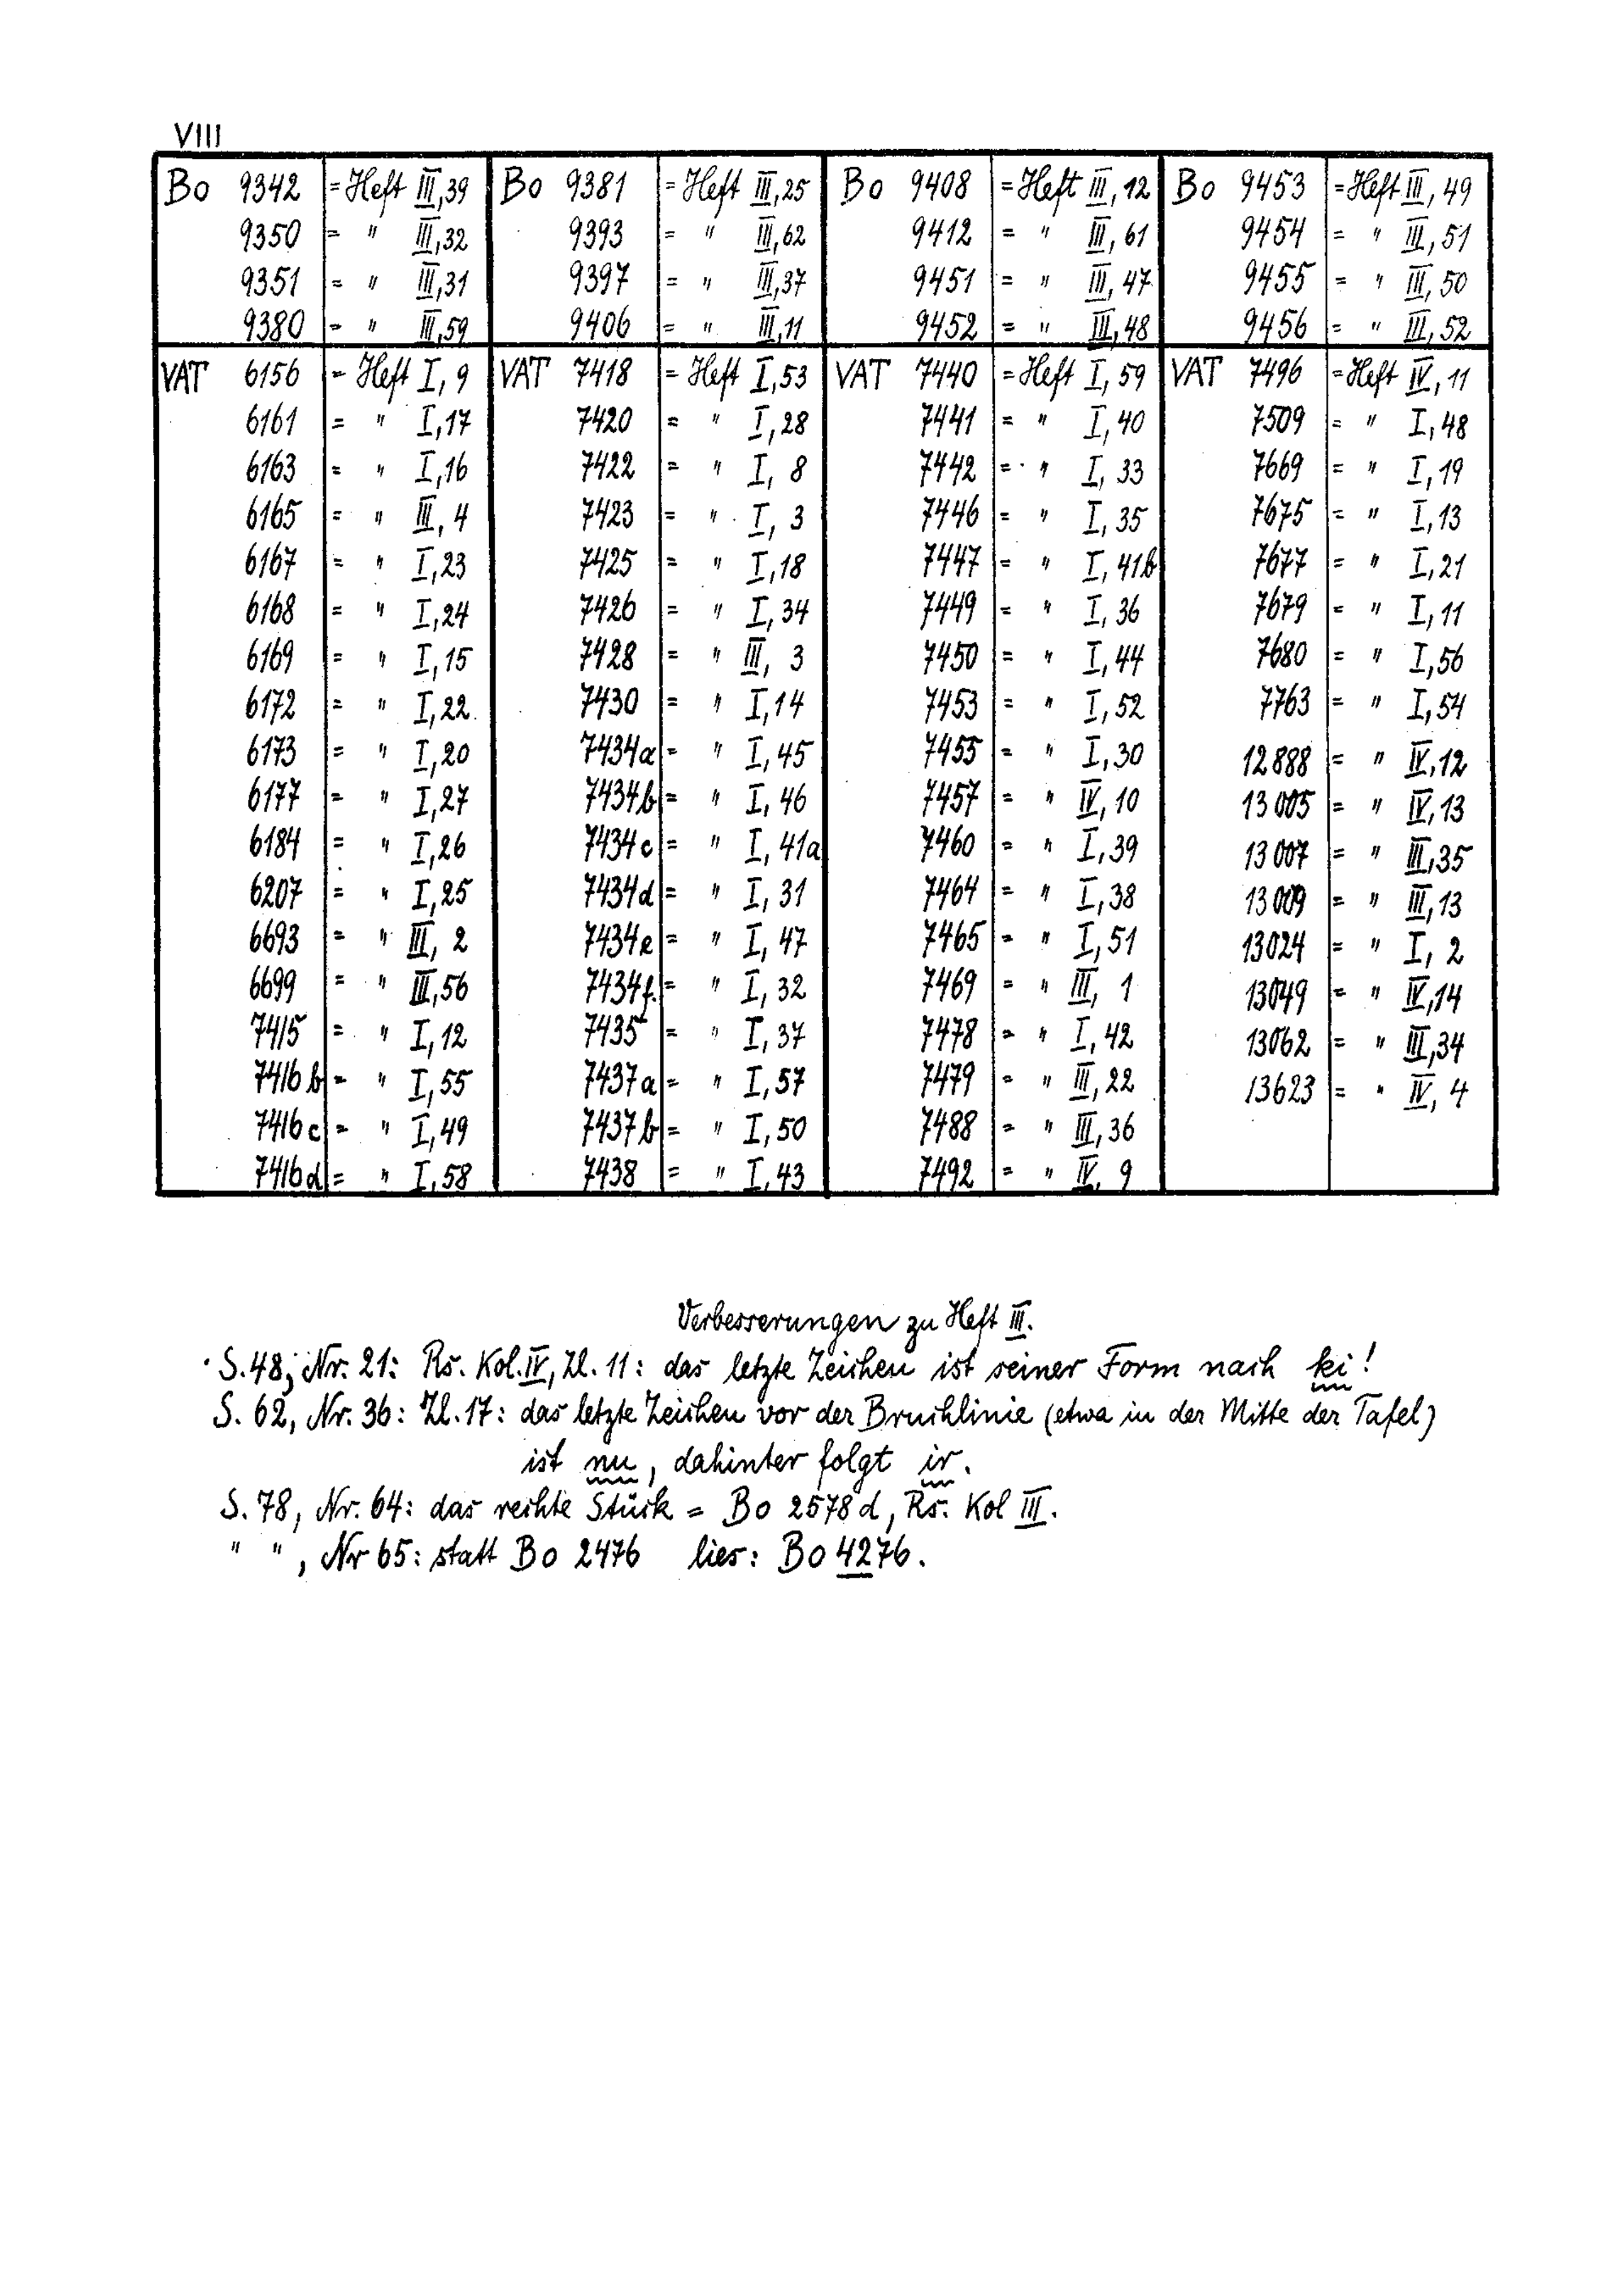 VIII
Bo 9342 = Heft III, 39 Bo 9381 = Heft III, 25 Bo 9408 = Heft III, 12 Bo 9453 = Heft III, 49
9350 = " III, 32 9393 = " III, 62 9412 = " III, 61 9454 = " III, 51
9351 = " III, 31 9397 = " III, 37 9451 = " III, 47 9455 = " III, 50
9380 = " III, 59 9406 = " III, 11 9452 = " III, 48 9456 = " III, 52
VAT 6156 = Heft I, 9 VAT 7418 = Heft I, 53 VAT 7440 = Heft I, 59 VAT 7496 = Heft IV, 11
6161 = " I, 17 7420 = " I, 28 7441 = " I, 40 7509 = " I, 48
6163 = " I, 16 7422 = " I, 8 7442 = " I, 33 7669 = " I, 19
6165 = " III, 4 7423 = " I, 3 7446 = " I, 35 7675 = " I, 13
6167 = " I, 23 7425 = " I, 18 7447 = " I, 41b 7677 = " I, 21
6168 = " I, 24 7426 = " I, 34 7449 = " I, 36 7679 = " I, 11
6169 = " I, 15 7428 = " III, 3 7450 = " I, 44 7680 = " I, 56
6172 = " I, 22 7430 = " I, 14 7453 = " I, 52 7763 = " I, 54
6173 = " I, 20 7434a = " I, 45 7455 = " I, 30 12888 = " IV, 12
6177 = " I, 27 7434b = " I, 46 7457 = " IV, 10 13005 = " IV, 13
6184 = " I, 26 7434c = " I, 41a 7460 = " I, 39 13007 = " III, 35
6207 = " I, 25 7434d = " I, 31 7464 = " I, 38 13009 = " III, 13
6693 = " III, 2 7434e = " I, 47 7465 = " I, 51 13024 = " I, 2
6699 = " III, 56 7434f. = " I, 32 7469 = " III, 1 13049 = " IV, 14
7415 = " I, 12 7435 = " I, 37 7478 = " I, 42 13062 = " III, 34
7416b = " I, 55 7437a = " I, 57 7479 = " III, 22 13623 = " IV, 4
7416c = " I, 49 7437b = " I, 50 7488 = " III, 36
7416d = " I, 58 7438 = " I, 43 7492 = " IV, 9
Verbesserungen zu Heft III.
S. 48, Nr. 21: Rs. Kol. IV, Zl. 11: das letzte Zeichen ist seiner Form nach ki!
S. 62, Nr. 36: Zl. 17: das letzte Zeichen vor der Bruchlinie (etwa in der Mitte der Tafel)
ist nu, dahinter folgt ir.
S. 78, Nr. 64: das rechte Stück = Bo 2578 d, Rs. Kol III.
" ", Nr 65: statt Bo 2476 lies: Bo 4276.